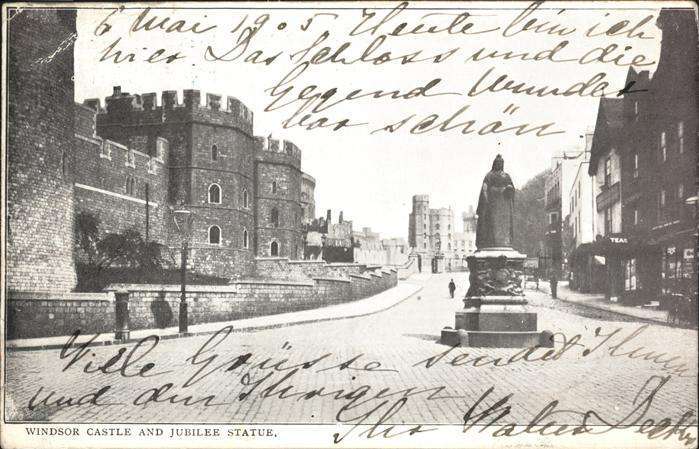 6 Mai 1905 Heute bin ich
hier. Das Schloss und die
Gegend Wunder
bar schön
TEAS
Viele Grüsse sendet Ihnen
und den Ihrigen
Ihr Walter
WINDSOR CASTLE AND JUBILEE STATUE.